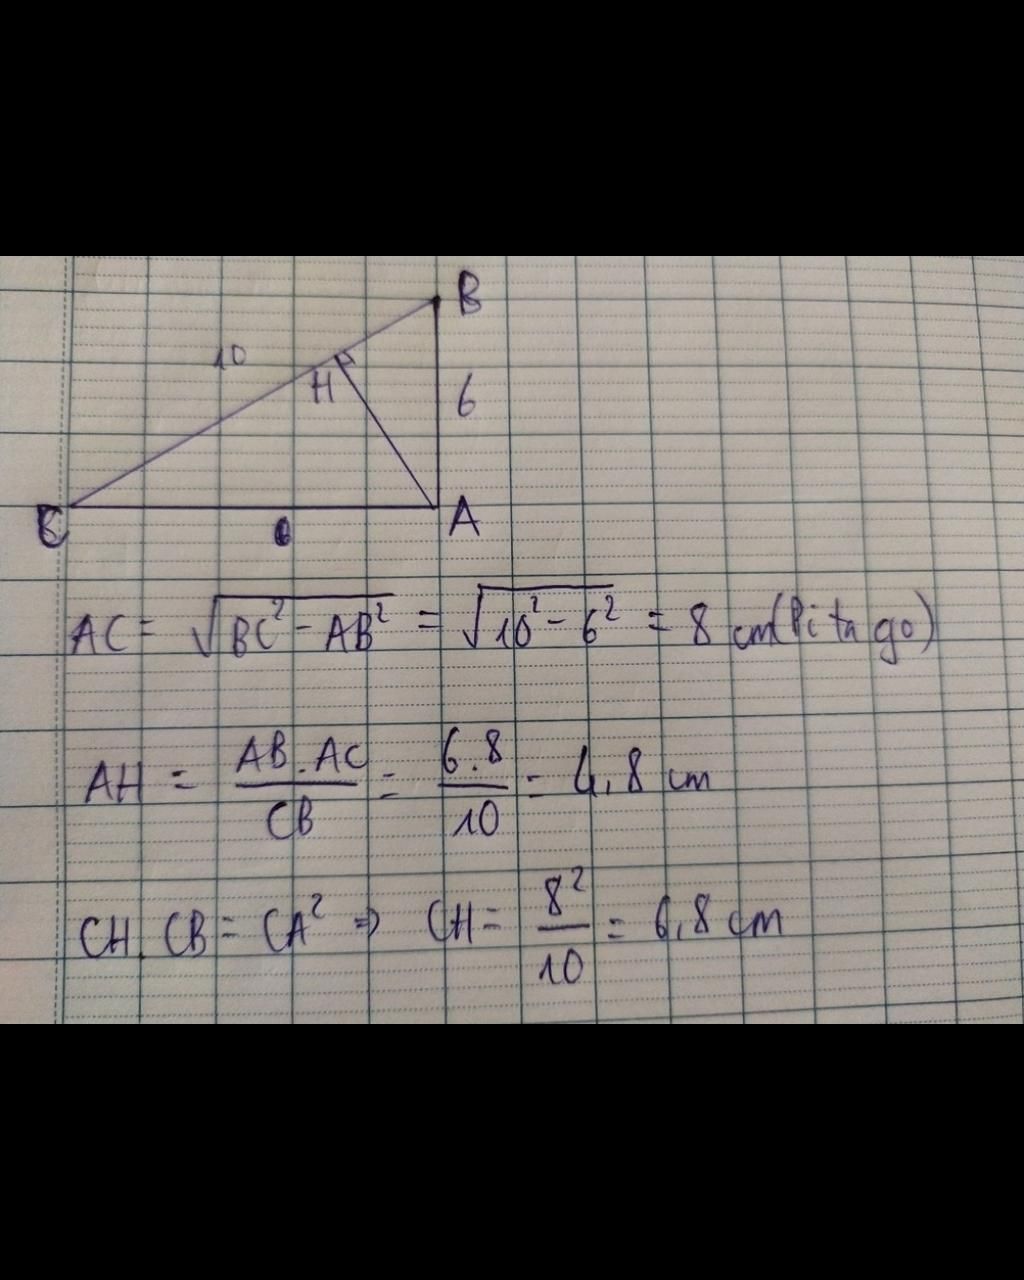 B
10
H
6
C
A
AC = √(BC² - AB²) = √(10² - 6²) = 8 cm (Pitago)
AH = AB.AC / CB = 6.8 / 10 = 4,8 cm
CH.CB = CA² ⇒ CH = 8² / 10 = 6,8 cm